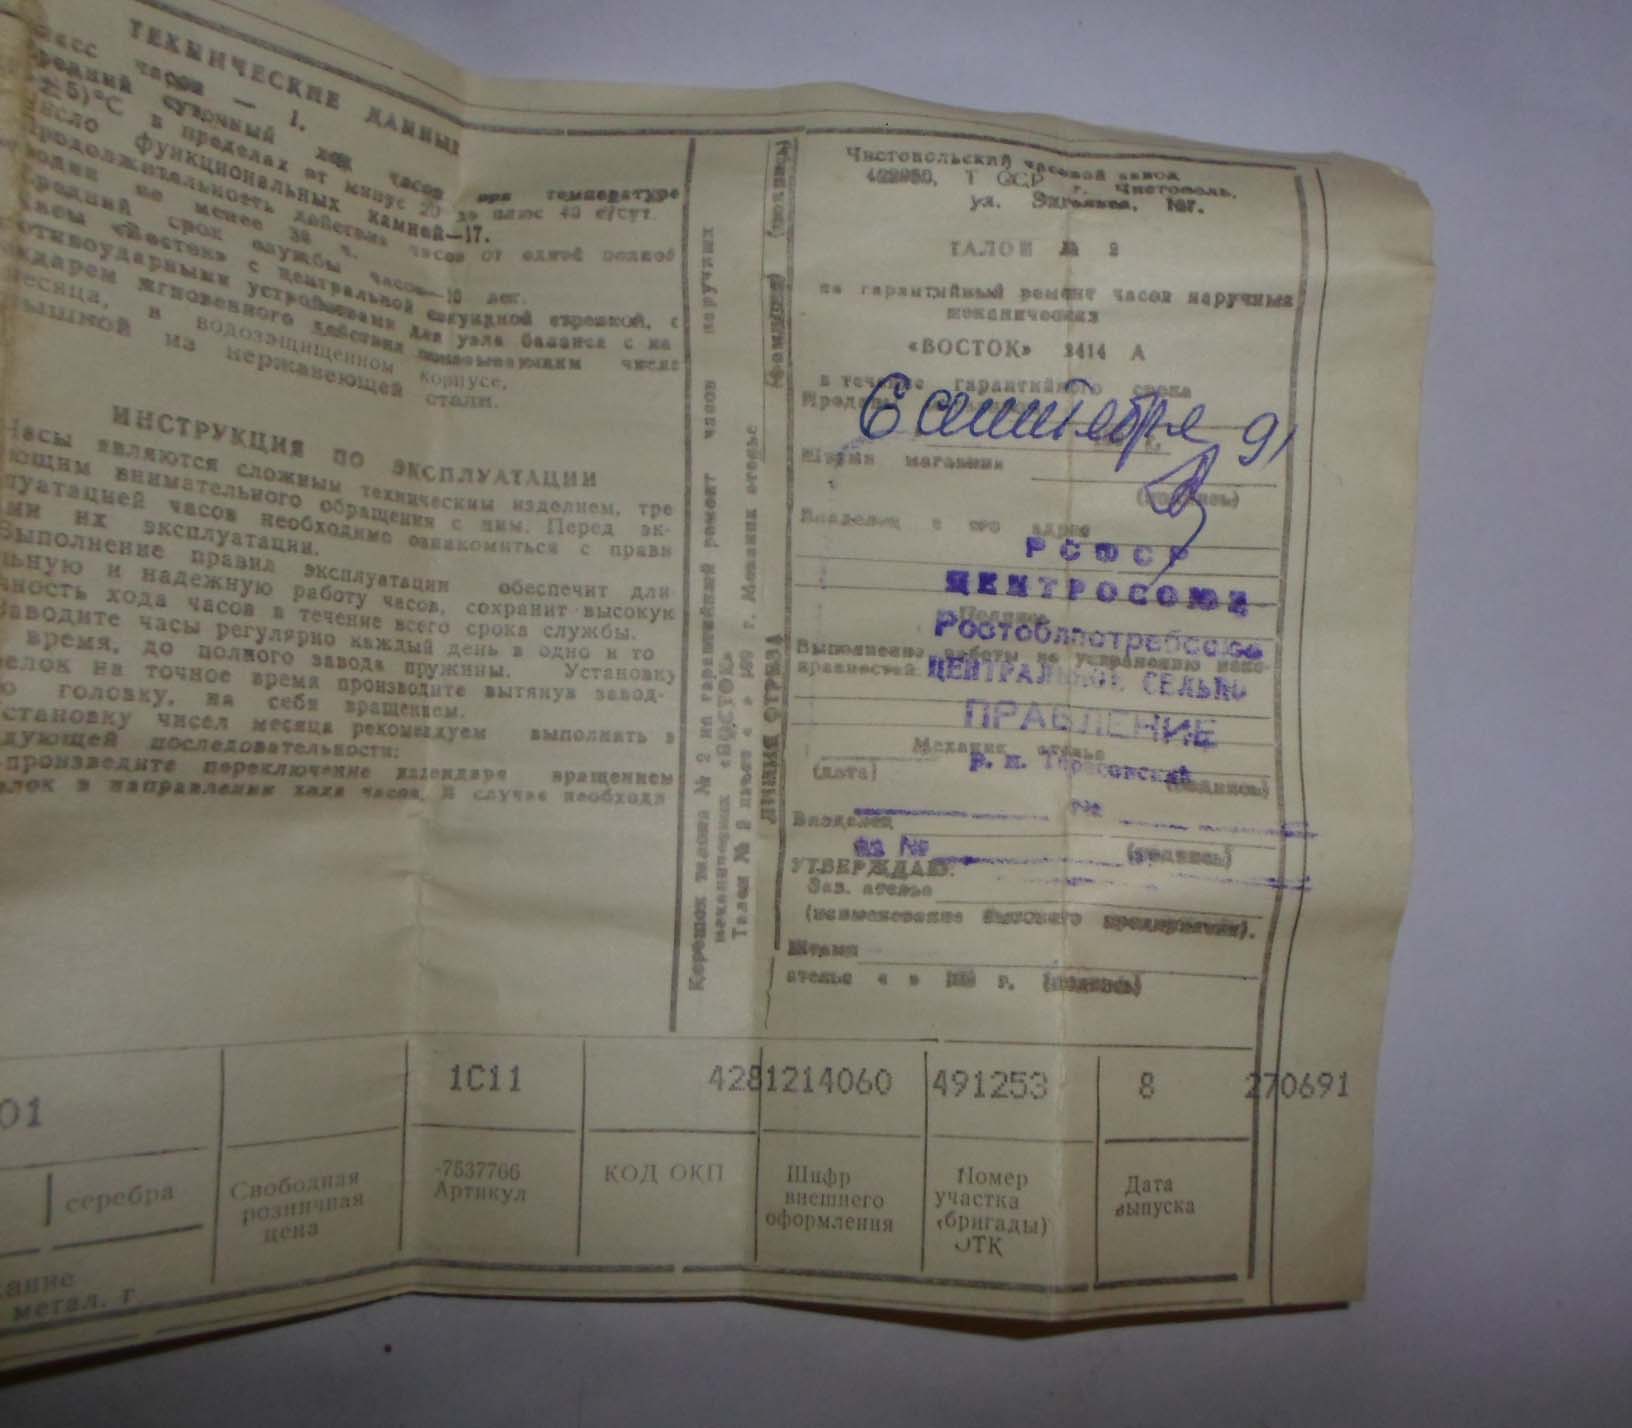 ТЕХНИЧЕСКИЕ ДАННЫЕ
часов — 1.
средний суточный ход часов при температуре
±5)°С в пределах от минус 20 до плюс 40 с/сут.
число функциональных камней—17.
продолжительность действия часов от одной полной
не менее 38 ч.
средний срок службы часов—10 лет.
«Восток» с центральной секундной стрелкой, с
устройствами для узла баланса с ка
мгновенного действия показывающим числа
месяца, в водозащищенном корпусе,
из нержавеющей стали.
ИНСТРУКЦИЯ ПО ЭКСПЛУАТАЦИИ
Часы являются сложным техническим изделием, тре
ющим внимательного обращения с ним. Перед эк-
плуатацией часов необходимо ознакомиться с прави
ми их эксплуатации.
Выполнение правил эксплуатации обеспечит дли
льную и надежную работу часов, сохранит высокую
чность хода часов в течение всего срока службы.
Заводите часы регулярно каждый день в одно и то
время, до полного завода пружины. Установку
елок на точное время производите вытянув завод-
ю головку, на себя вращением.
становку чисел месяца рекомендуем выполнять в
дующей последовательности:
произведите переключение календаря вращением
елок в направлении хода часов, в случае необходи
Корешок талона № 2 на гарантийный ремонт часов наручных
механических «ВОСТОК»
Талон № 2 изъят « » 199 г. Механик ателье
(фамилия) (подпись)
ЛИНИЯ ОТРЕЗА
Чистопольский часовой завод
422950, Т ССР г. Чистополь,
ул. Энгельса, 127.
ТАЛОН № 2
на гарантийный ремонт часов наручных
механических
«ВОСТОК» 2414 А
в течение гарантийного срока
6 сентября 91
Штамп магазина
(подпись)
Владелец и его адрес
РСФСР
ЦЕНТРОСОЮЗ
Подпись
Ростоблпотребсоюз
Выполнение работы по устранению неис-
правностей
ЦЕНТРАЛЬНОЕ СЕЛЬПО
ПРАВЛЕНИЕ
Механик ателье
(дата) (подпись)
р. п.
№
Владелец
на № (подпись)
УТВЕРЖДАЮ:
Зав. ателье
(наименование бытового предприятия).
Штамп
ателье « » 199 г. (подпись)
01 1С11 4281214060 491253 8 270691
серебра
Свободная
розничная
цена
-7537766
Артикул
КОД ОКП
Шифр
внешнего
оформления
Номер
участка
(бригады)
ОТК
Дата
выпуска
метал. г